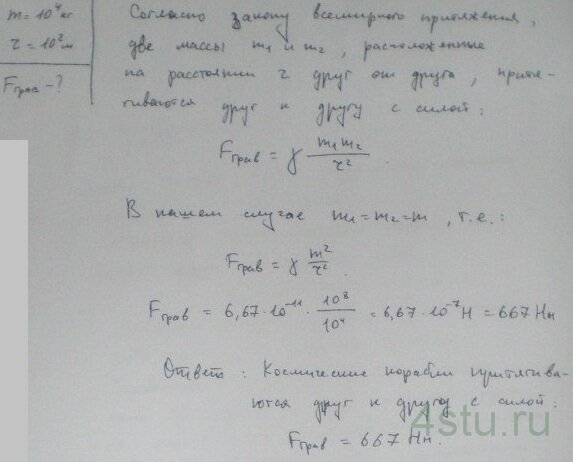 m = 10⁴ кг
r = 10² м
Fграв - ?
Согласно закону всемирного притяжения,
две массы m₁ и m₂, расположенные
на расстоянии r друг от друга, притя-
гиваются друг к другу с силой:
Fграв = γ m₁m₂/r²
В нашем случае m₁ = m₂ = m, т.е.:
Fграв = γ m²/r².
Fграв = 6,67·10⁻¹¹ · 10⁸/10⁴ = 6,67·10⁻⁷ Н = 667 Нн
Ответ: Космические корабли притягива-
ются друг к другу с силой:
Fграв = 667 Нн.
4stu.ru